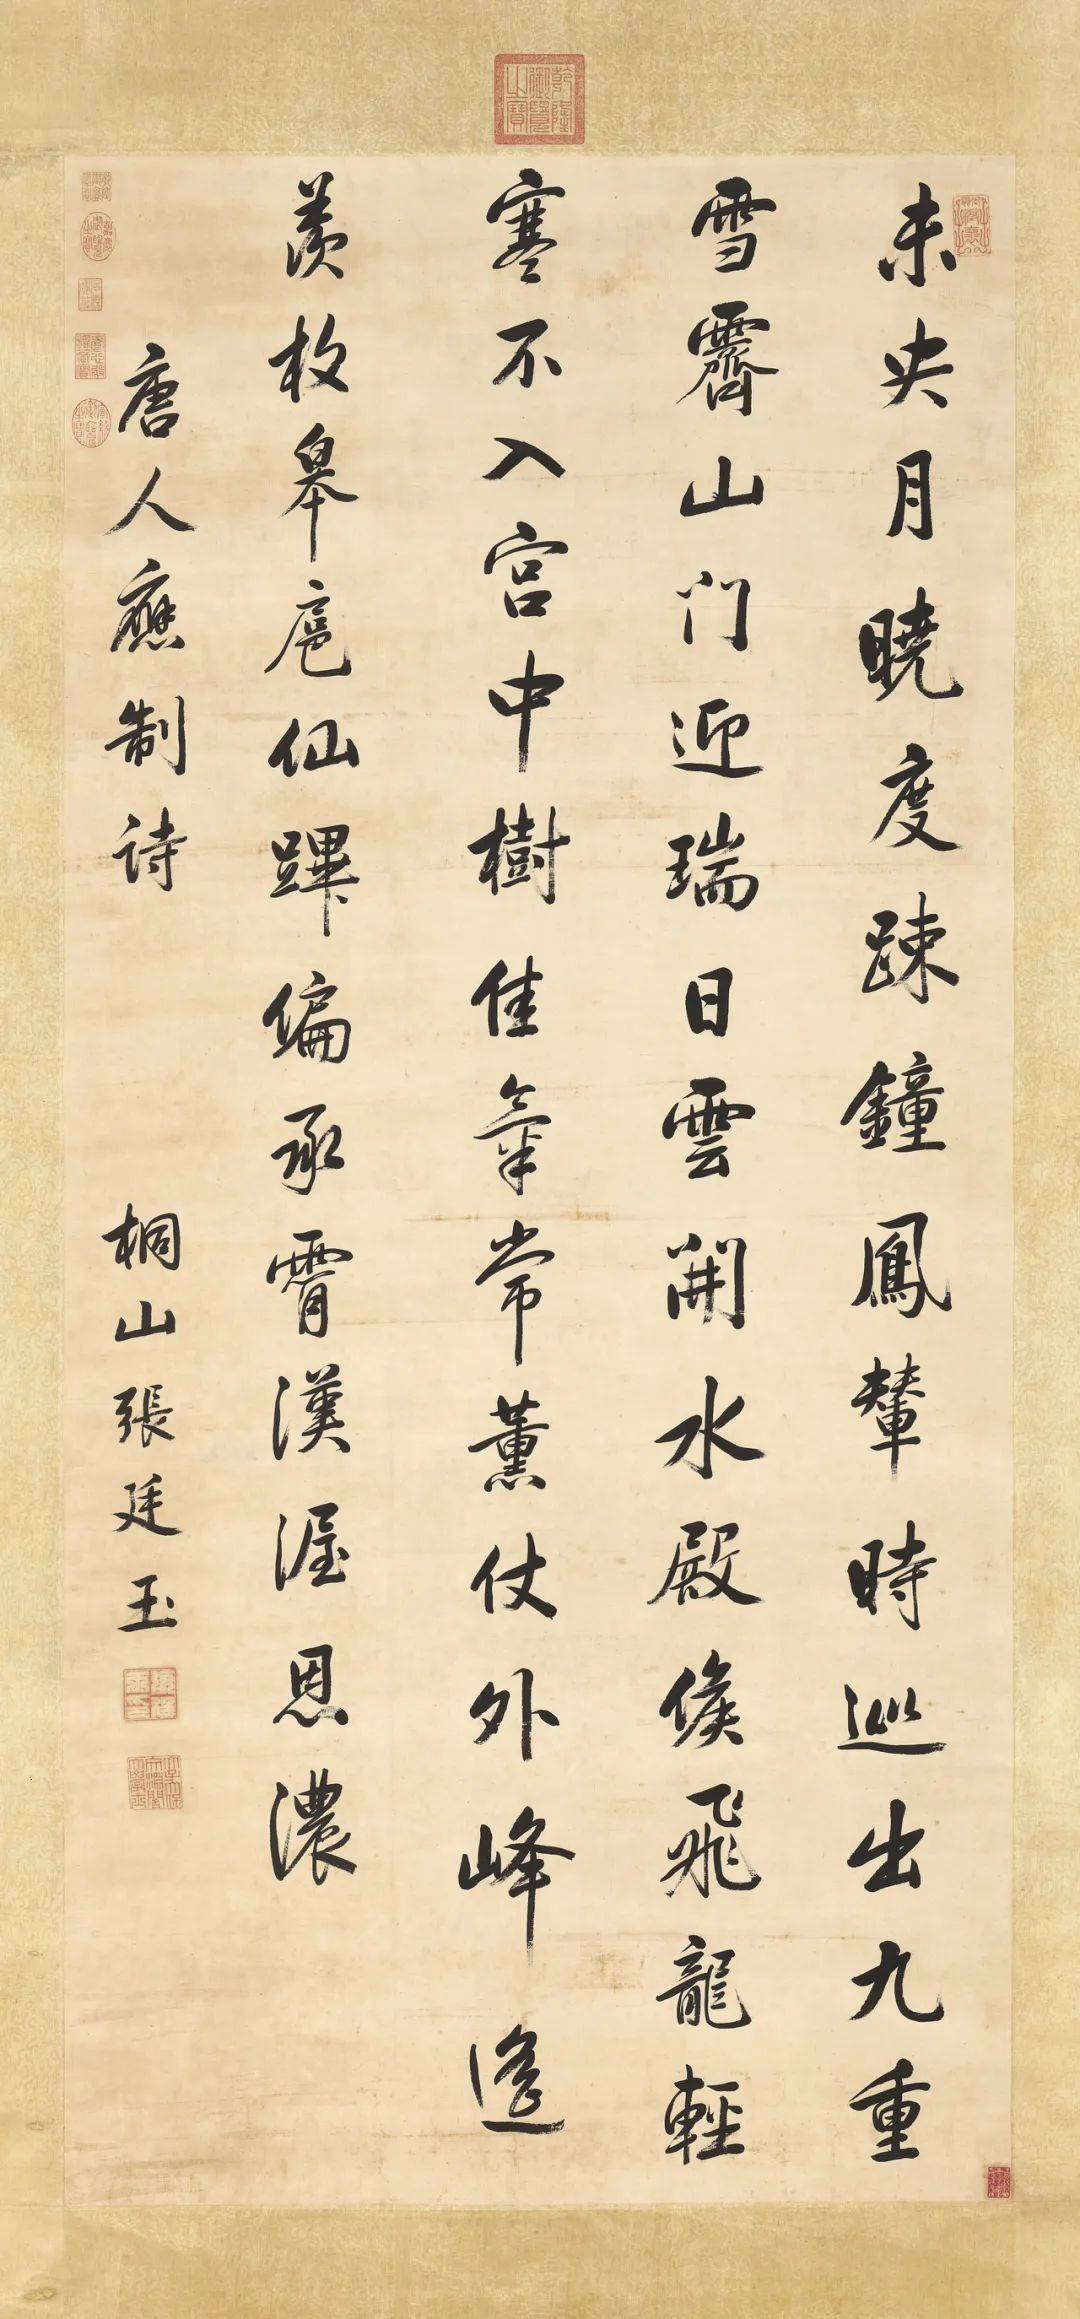 未央月曉度踈鐘鳳輦時巡出九重
雪霽山門迎瑞日雲開水殿候飛龍輕
寒不入宮中樹佳氣常薰仗外峰遙
羨枚皋扈仙蹕偏承霄漢渥恩濃
唐人應制诗
桐山張廷玉
乾隆御覽之寶